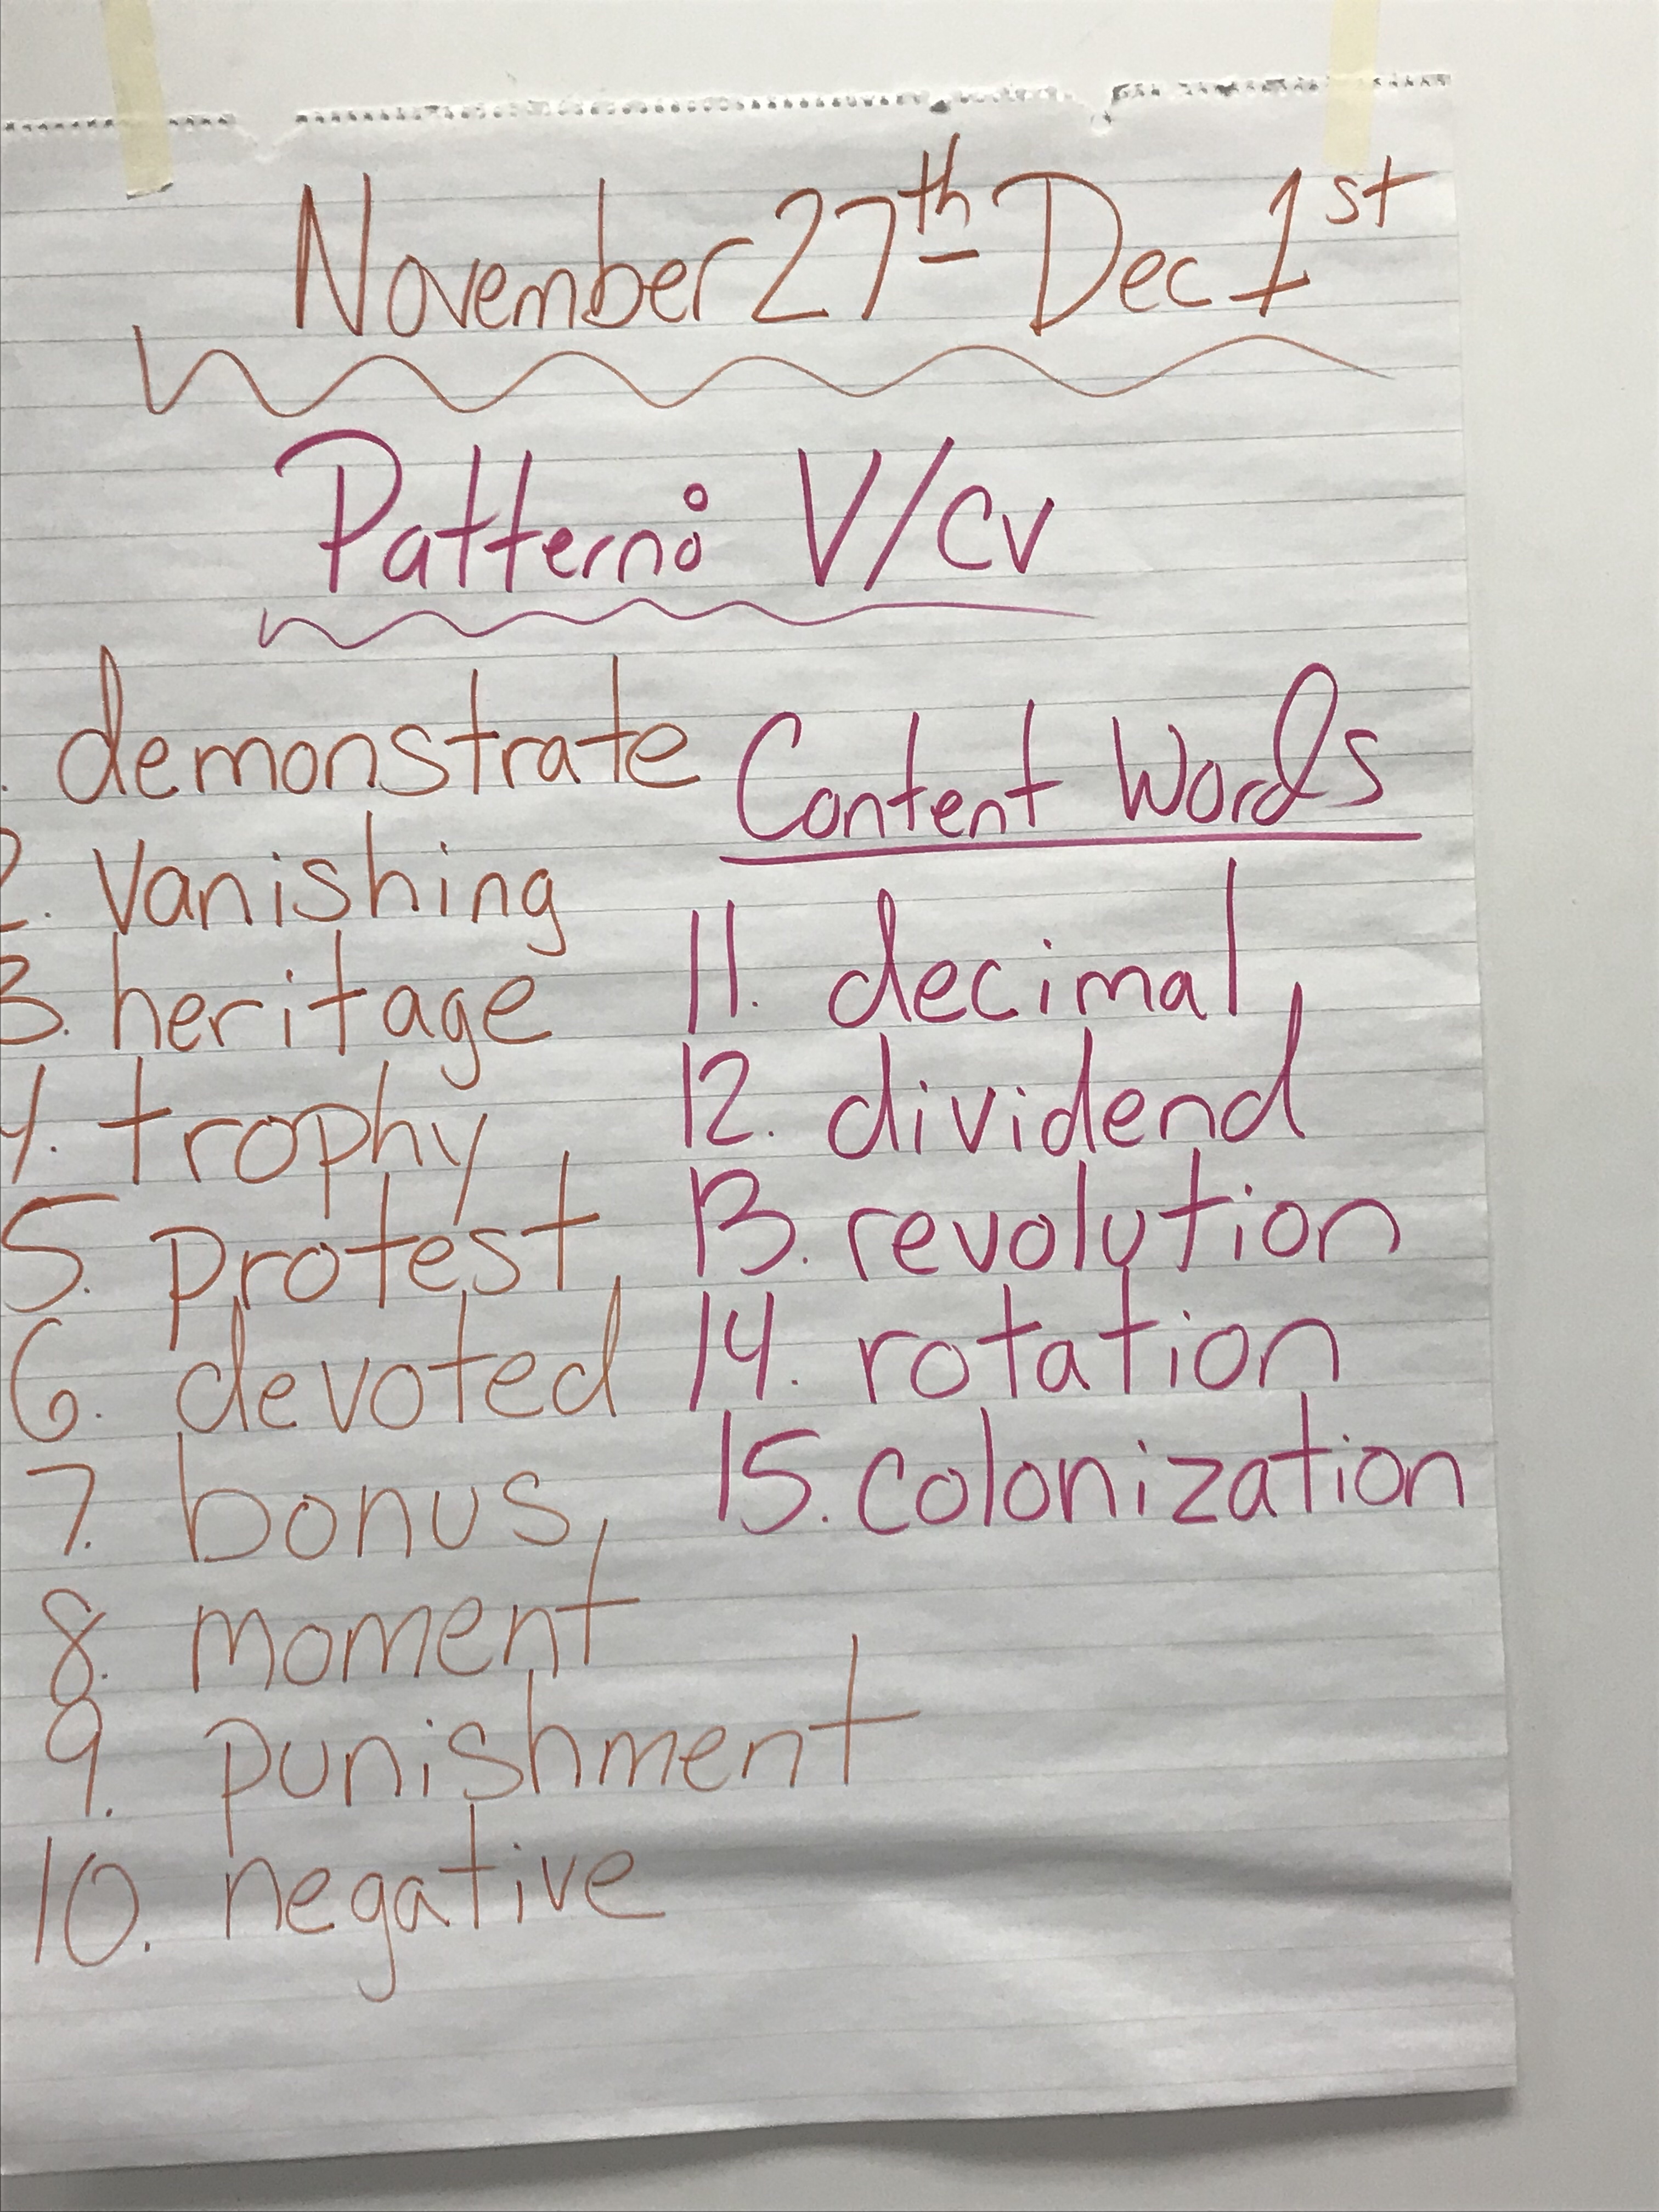 November 27th - Dec 1st
Pattern: V/CV
. demonstrate
2. Vanishing
3. heritage
4. trophy
5. Protest
6. devoted
7. bonus
8. moment
9. punishment
10. negative
Content Words
11. decimal
12. dividend
13. revolution
14. rotation
15. colonization